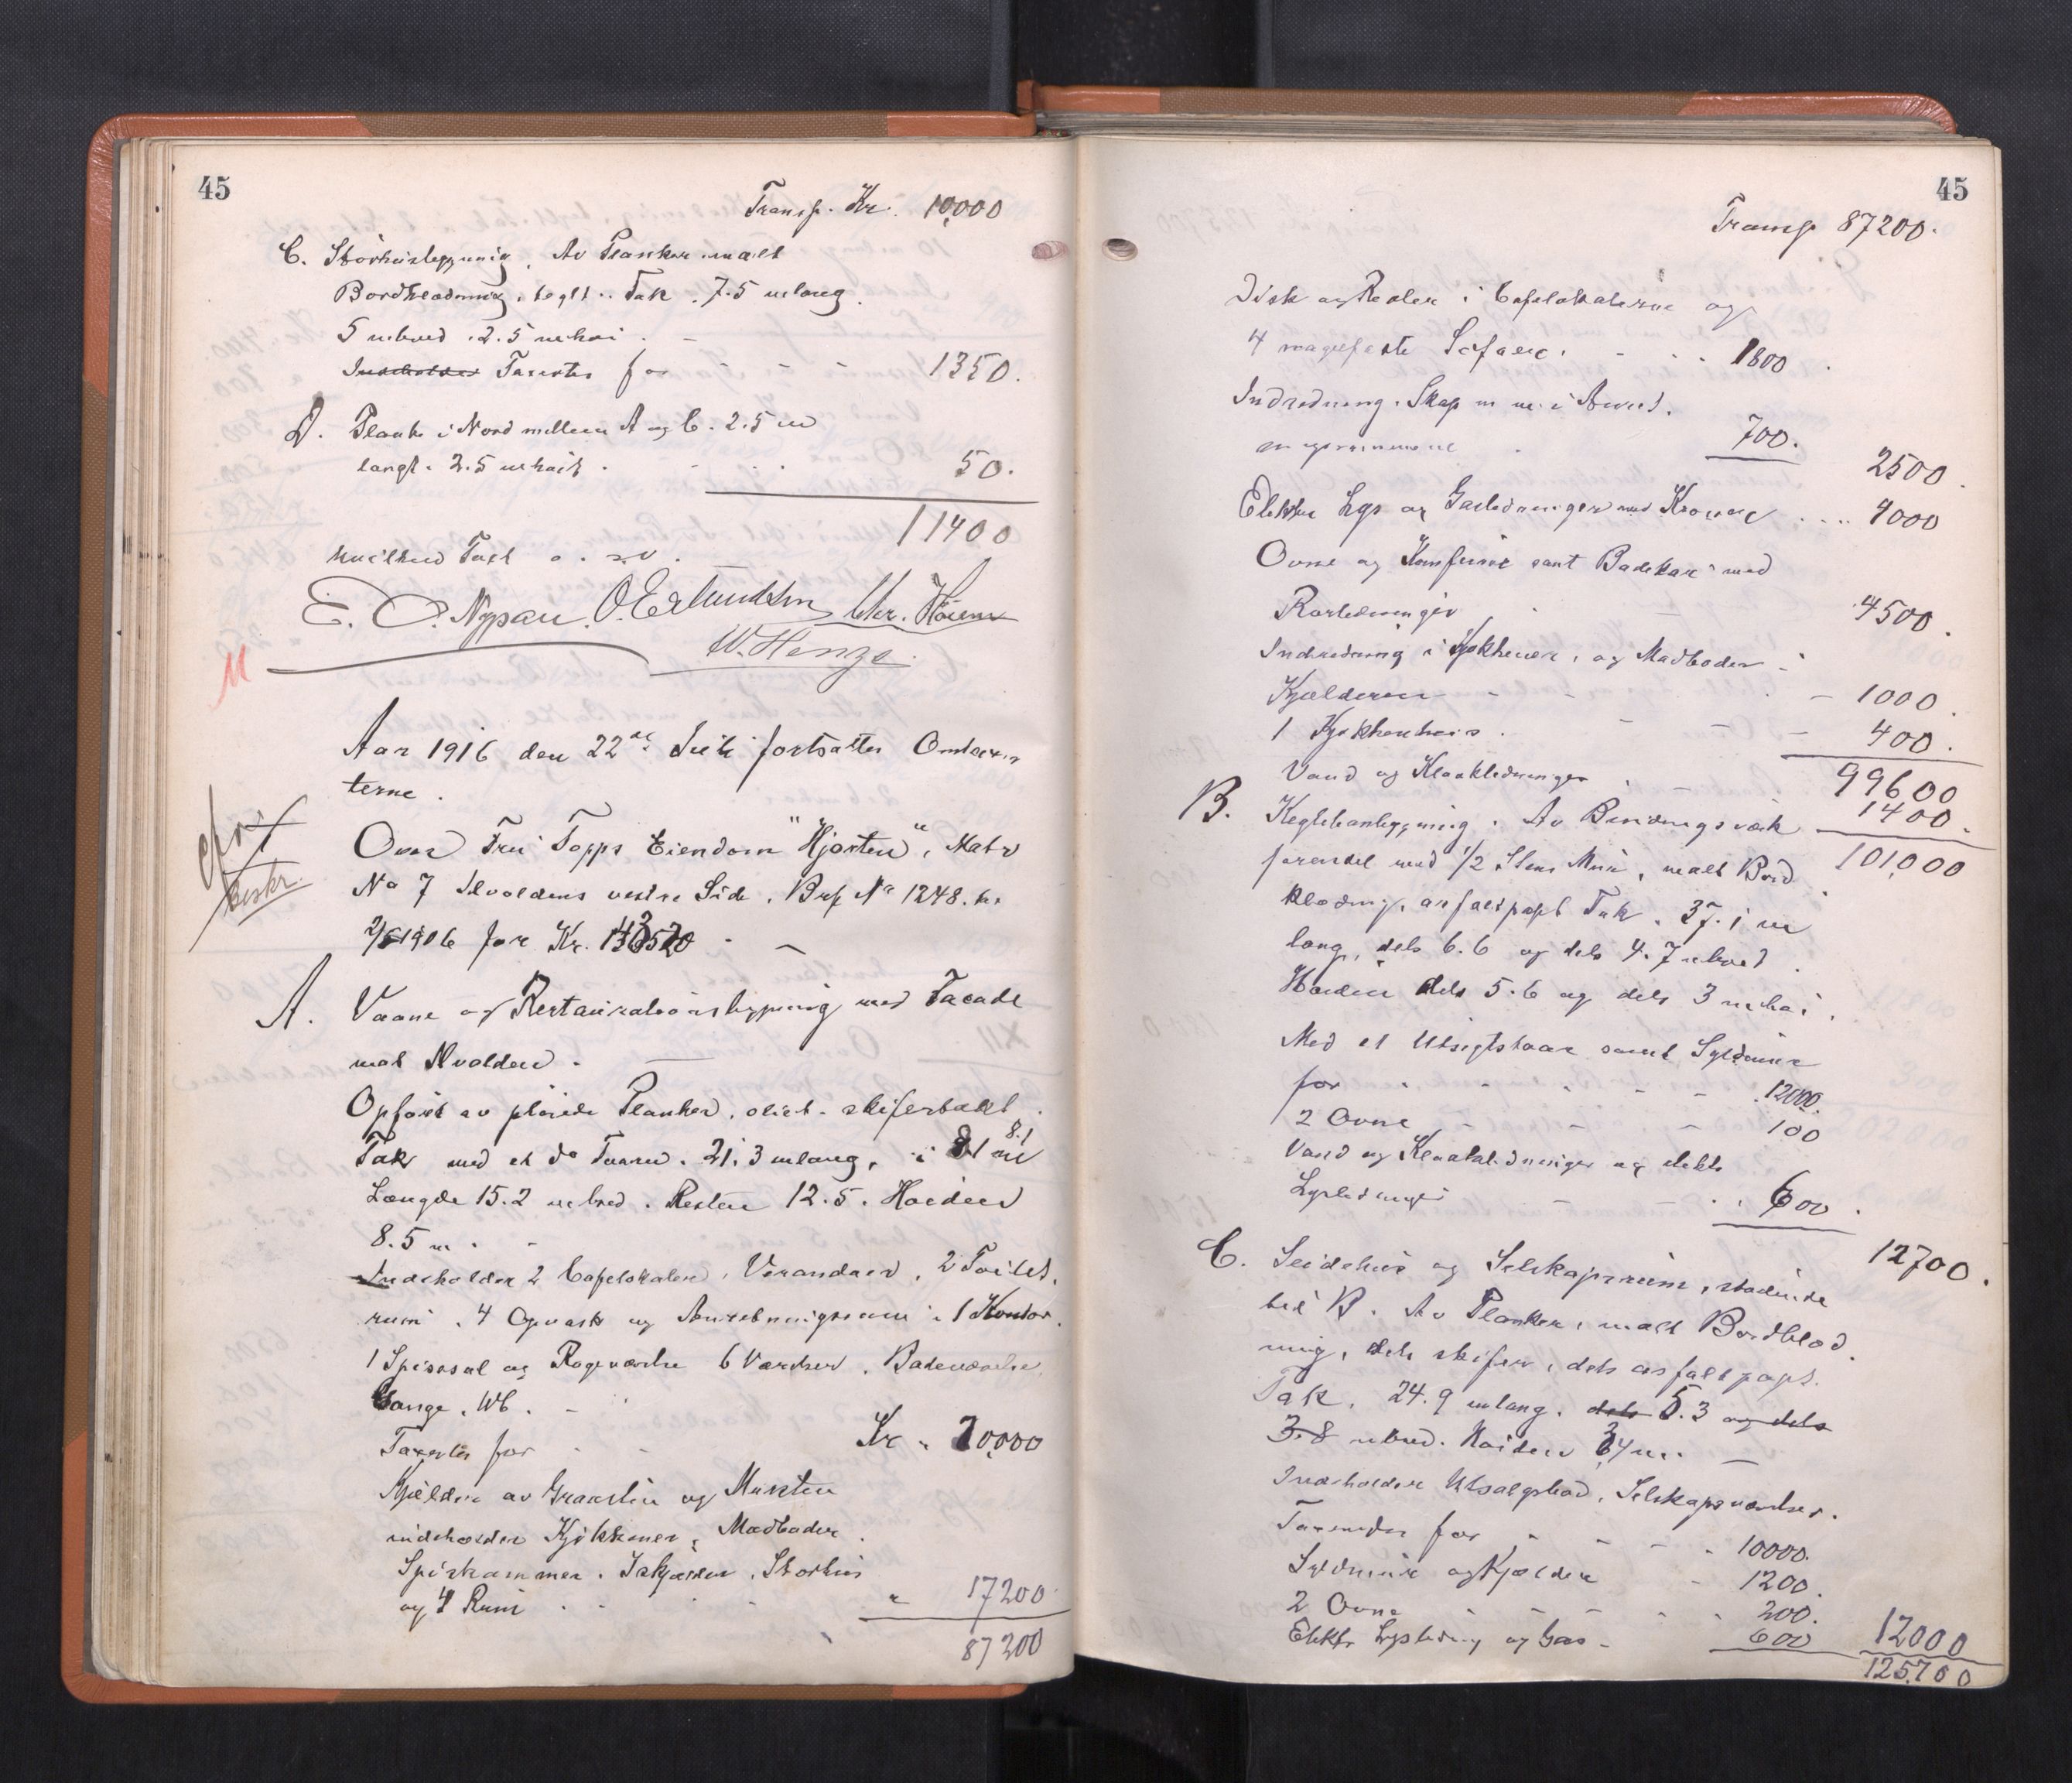 45
Transp. Kr. 10,000
C. Storhusbygning, Av Planker malt
Bordklædning, teglt. Tak, 7.5 m lang
5 m bred, 2.5 m høi.
Indeholder Taxertes for - - - 1350.
D. Plankeg i Nord mellem A og C. 2.5 m
langt. 2.5 m høit. - - - 50.
11400
hvilken Taxt o. s. v.
E. O. Nypan. O. Erlundsen Chr. Høiem
W. Henze.
M
Aar 1916 den 22de Juli fortsattes Omtaxer
terne.
Over Fru Topps Eiendom "Hjorten", Matr
No 7 Ilvoldens vestre Side. Brf No 1248. kr
2/6 1906 for Kr. -
Beskr.
A. Vaane og Restaurationsbygning med Facade
mot Ilvolden. -
Opført av pløiede Planker, oliet - skifertækt
Tak med et do Taarn. 21.3 m lang, i 8.1 m
8.1
Længde 15.2 m bred. Resten 12.5. Høiden
8.5 m. -
Indeholder 2 Cafelokaler, Verandaer, 2 Toilet.
rum, 4 Opvask og Anretningsrum, 1 Kontor.
1 Spisesal og Røgeværelse 6 Værelser, Badeværelse,
Gange, WC. -
Taxertes for - - Kr. 70,000
Kjælder av Graasten og Mursten
indeholder Kjøkkener, Madboder
Spiskammer, Iskjælder, Storhus
og 4 Rum - - - " 17200
87200
45
Transp 87200.
Disk og Reoler i Cafelokalerne og
4 magefeste Sofaer. - - - 1800.
Indredning, Skap m m. i Anret.
ningsrummene - 700. 2500.
Elektr Lys og Gasledninger med Kroner .... 4000
Ovne og Komfurer samt Badekar med
Rørledninger - - 4500.
Indredning i Kjøkkener, og Madboder i
Kjælderen - - - 1000.
1 Kjøkkenheis. - - - 400.
99600
Vand og Kloakledninger - - 1400.
101,000
B. Keglebanbygning. Av Bindingsværk
forendel med 1/2 Stens Mur, malt Bord
klædning, asfaltpapt Tak. 37.1 m
lang, dels 6.6 og dels 4.7 m bred.
Høiden dels 5.6 og dels 3 m høi.
Med et Utsigtstaar samt Syldmur
for - - - - - 12000.
2 Ovne - - - 100
Vand og Kloakledninger og elektr
Lysledninger - - - 600.
12700.
C. Seidehus og Selskapsrum, stødende
til B. Av Planker, malt Bordklæd.
ning, dels skifer, dels asfaltpapt.
Tak. 24.9 m lang. dels 5.3 og dels
3.8 m bred. Høiden 3.4 m. -
Indeholder Utsalgsbod, Selskapsværelser.
Taxertes for - - - - 10000.
Syldmur og Kjælder - 1200.
2 Ovne - - - - - 200.
Elektr Lysledning og Gas - 600 12000
125,700